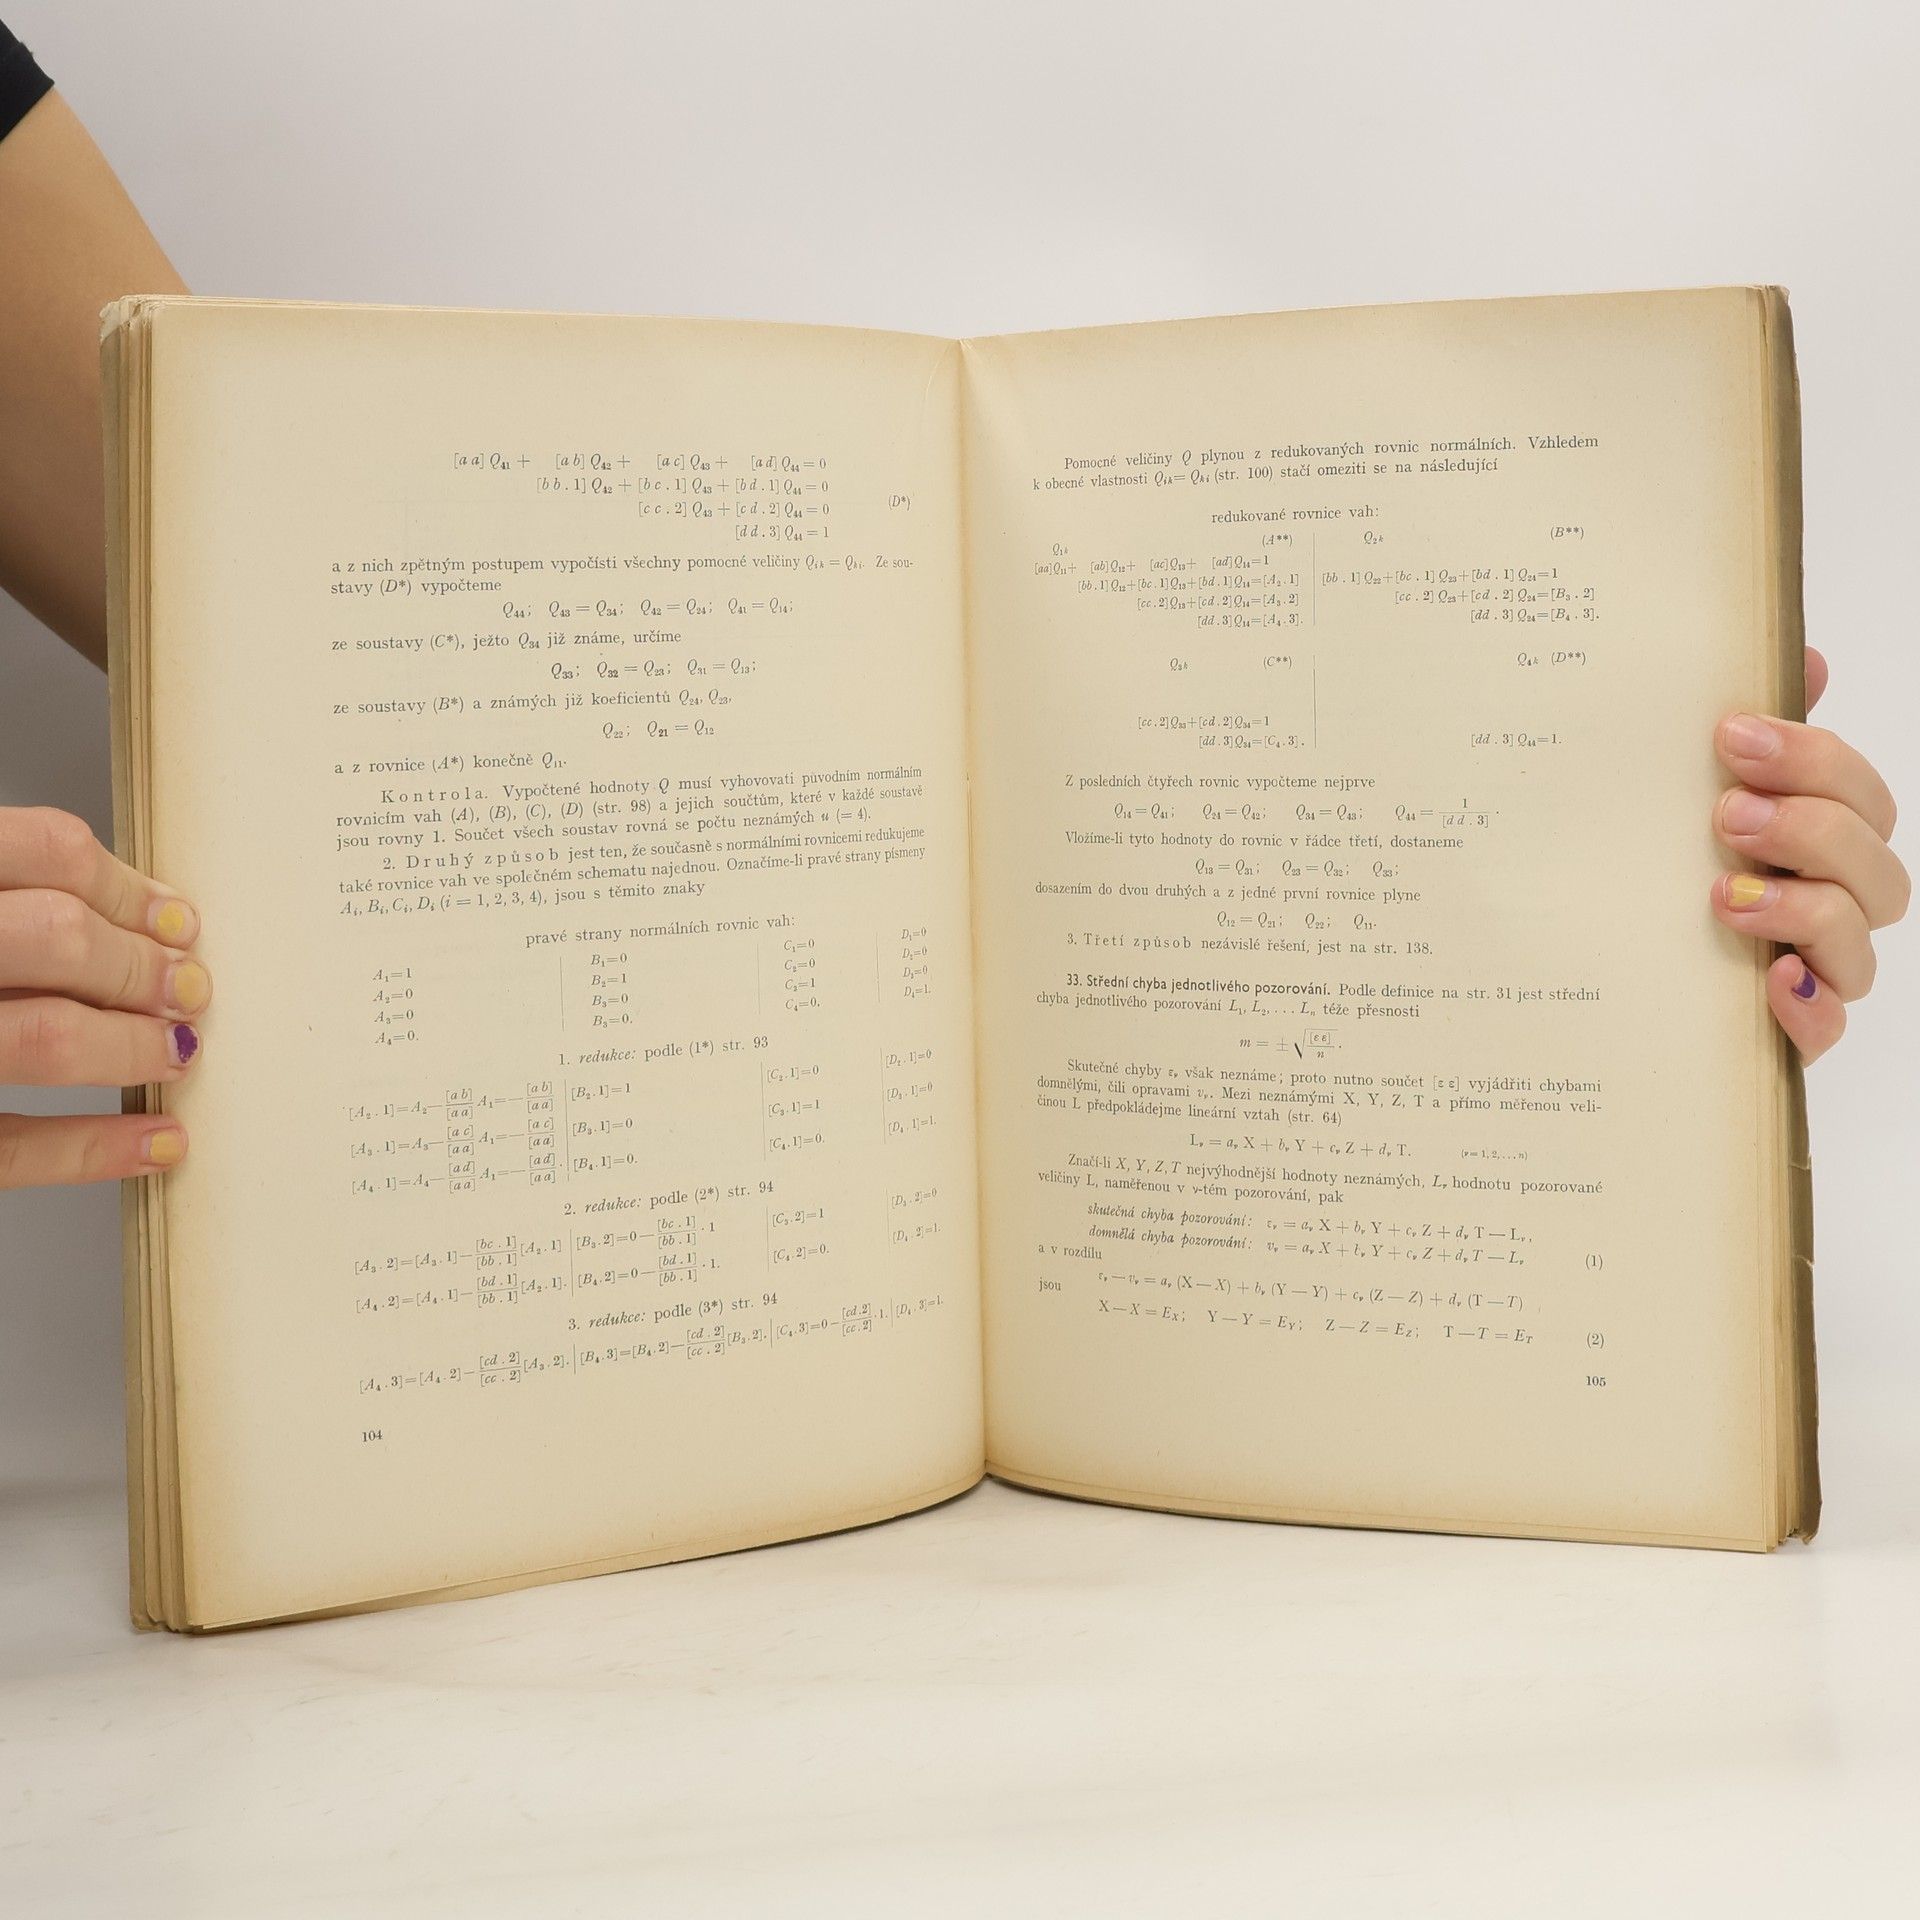 [a a] Q₄₁ + [a b] Q₄₂ + [a c] Q₄₃ + [a d] Q₄₄ = 0
[b b . 1] Q₄₂ + [b c . 1] Q₄₃ + [b d . 1] Q₄₄ = 0
[c c . 2] Q₄₃ + [c d . 2] Q₄₄ = 0 (D*)
[d d . 3] Q₄₄ = 1
a z nich zpětným postupem vypočísti všechny pomocné veličiny Qᵢₖ = Qₖᵢ. Ze sou-
stavy (D*) vypočteme
Q₄₄; Q₄₃ = Q₃₄; Q₄₂ = Q₂₄; Q₄₁ = Q₁₄;
ze soustavy (C*), ježto Q₃₄ již známe, určíme
Q₃₃; Q₃₂ = Q₂₃; Q₃₁ = Q₁₃;
ze soustavy (B*) a známých již koeficientů Q₂₄, Q₂₃,
Q₂₂; Q₂₁ = Q₁₂
a z rovnice (A*) konečně Q₁₁.
Kontrola. Vypočtené hodnoty Q musí vyhovovati původním normálním
rovnicím vah (A), (B), (C), (D) (str. 98) a jejich součtům, které v každé soustavě
jsou rovny 1. Součet všech soustav rovná se počtu neznámých u (= 4).
2. Druhý způsob jest ten, že současně s normálními rovnicemi redukujeme
také rovnice vah ve společném schematu najednou. Označíme-li pravé strany písmeny
Aᵢ, Bᵢ, Cᵢ, Dᵢ (i = 1, 2, 3, 4), jsou s těmito znaky
pravé strany normálních rovnic vah:
A₁=1 B₁=0 C₁=0 D₁=0
A₂=0 B₂=1 C₂=0 D₂=0
A₃=0 B₃=0 C₃=1 D₃=0
A₄=0. B₃=0. C₄=0. D₄=1.
1. redukce: podle (1*) str. 93
[A₂ . 1]=A₂−[ab]/[aa] A₁=−[ab]/[aa] [B₂ . 1]=1 [C₂ . 1]=0 [D₂ . 1]=0
[A₃ . 1]=A₃−[ac]/[aa] A₁=−[ac]/[aa] [B₃ . 1]=0 [C₃ . 1]=1 [D₃ . 1]=0
[A₄ . 1]=A₄−[ad]/[aa] A₁=−[ad]/[aa]. [B₄ . 1]=0. [C₄ . 1]=0. [D₄ . 1]=1.
2. redukce: podle (2*) str. 94
[A₃ . 2]=[A₃ . 1]−[bc . 1]/[bb . 1] [A₂ . 1] [B₃ . 2]=0−[bc . 1]/[bb . 1] . 1 [C₃ . 2]=1 [D₃ . 2]=0
[A₄ . 2]=[A₄ . 1]−[bd . 1]/[bb . 1] [A₂ . 1]. [B₄ . 2]=0−[bd . 1]/[bb . 1] . 1. [C₄ . 2]=0. [D₄ . 2]=1.
3. redukce: podle (3*) str. 94
[A₄ . 3]=[A₄ . 2]−[cd . 2]/[cc . 2] [A₃ . 2]. [B₄ . 3]=[B₄ . 2]−[cd . 2]/[cc . 2] [B₃ . 2]. [C₄ . 3]=0−[cd .2]/[cc . 2] . 1. [D₄ . 3]=1.
104
Pomocné veličiny Q plynou z redukovaných rovnic normálních. Vzhledem
k obecné vlastnosti Qᵢₖ= Qₖᵢ (str. 100) stačí omeziti se na následující
redukované rovnice vah:
Q₁ₖ (A**) Q₂ₖ (B**)
[aa]Q₁₁+ [ab]Q₁₂+ [ac]Q₁₃+ [ad]Q₁₄=1
[bb . 1]Q₁₂+[bc . 1]Q₁₃+[bd . 1]Q₁₄=[A₂ . 1] [bb . 1] Q₂₂+[bc . 1] Q₂₃+[bd . 1] Q₂₄=1
[cc . 2]Q₁₃+[cd . 2]Q₁₄=[A₃ . 2] [cc . 2] Q₂₃+[cd . 2] Q₂₄=[B₃ . 2]
[dd . 3]Q₁₄=[A₄ . 3]. [dd . 3] Q₂₄=[B₄ . 3].
Q₃ₖ (C**) Q₄ₖ (D**)
[cc . 2]Q₃₃+[cd . 2]Q₃₄=1
[dd . 3]Q₃₄=[C₄ . 3]. [dd . 3] Q₄₄=1.
Z posledních čtyřech rovnic vypočteme nejprve
Q₁₄ = Q₄₁; Q₂₄ = Q₄₂; Q₃₄ = Q₄₃; Q₄₄ = 1/[d d . 3] .
Vložíme-li tyto hodnoty do rovnic v řádce třetí, dostaneme
Q₁₃ = Q₃₁; Q₂₃ = Q₃₂; Q₃₃;
dosazením do dvou druhých a z jedné první rovnice plyne
Q₁₂ = Q₂₁; Q₂₂; Q₁₁.
3. Třetí způsob nezávislé řešení, jest na str. 138.
33. Střední chyba jednotlivého pozorování. Podle definice na str. 31 jest střední
chyba jednotlivého pozorování L₁, L₂, . . . Lₙ téže přesnosti
m = ± √([ε ε]/n) .
Skutečné chyby εᵥ však neznáme; proto nutno součet [ε ε] vyjádřiti chybami
domnělými, čili opravami vᵥ. Mezi neznámými X, Y, Z, T a přímo měřenou veli-
činou L předpokládejme lineární vztah (str. 64)
Lᵥ = aᵥ X + bᵥ Y + cᵥ Z + dᵥ T. (ν = 1, 2, . . . n)
Značí-li X, Y, Z, T nejvýhodnější hodnoty neznámých, Lᵥ hodnotu pozorované
veličiny L, naměřenou v ν-tém pozorování, pak
skutečná chyba pozorování: εᵥ = aᵥ X + bᵥ Y + cᵥ Z + dᵥ T — Lᵥ,
domnělá chyba pozorování: vᵥ = aᵥ X + bᵥ Y + cᵥ Z + dᵥ T — Lᵥ (1)
a v rozdílu
εᵥ — vᵥ = aᵥ (X — X) + bᵥ (Y — Y) + cᵥ (Z — Z) + dᵥ (T — T)
jsou
X — X = E_X; Y — Y = E_Y; Z — Z = E_Z; T — T = E_T (2)
105